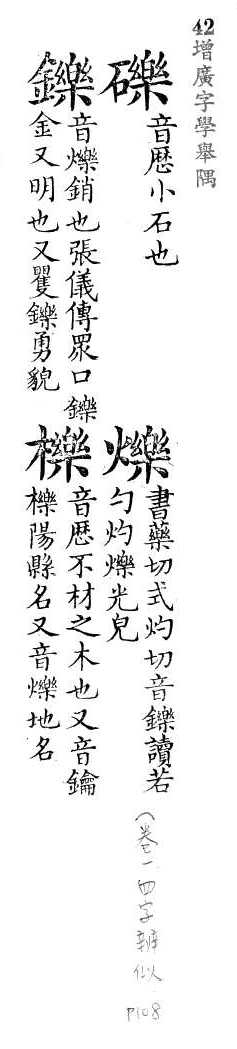 42增廣字學舉隅
礫
音歴小石也
爍
書藥切式灼切音鑠讀若
勺灼爍光皃
鑠
音爍銷也張儀傳眾口鑠
金又明也又矍鑠勇貌
櫟
音歴不材之木也又音鑰
櫟陽縣名又音爍地名
(卷一 四字辨似
P108